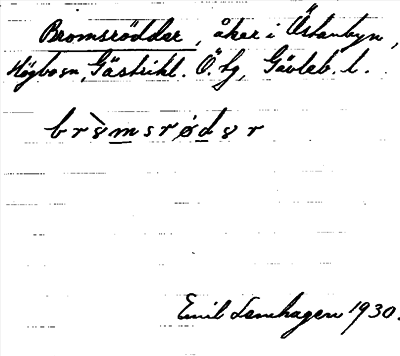 Bromsrödder, åker i Östanbyn,
Högbo sn, Gästrikl. Ö. tg, Gävleb. l.
brømsrødər
Emil Lenhagen 1930.